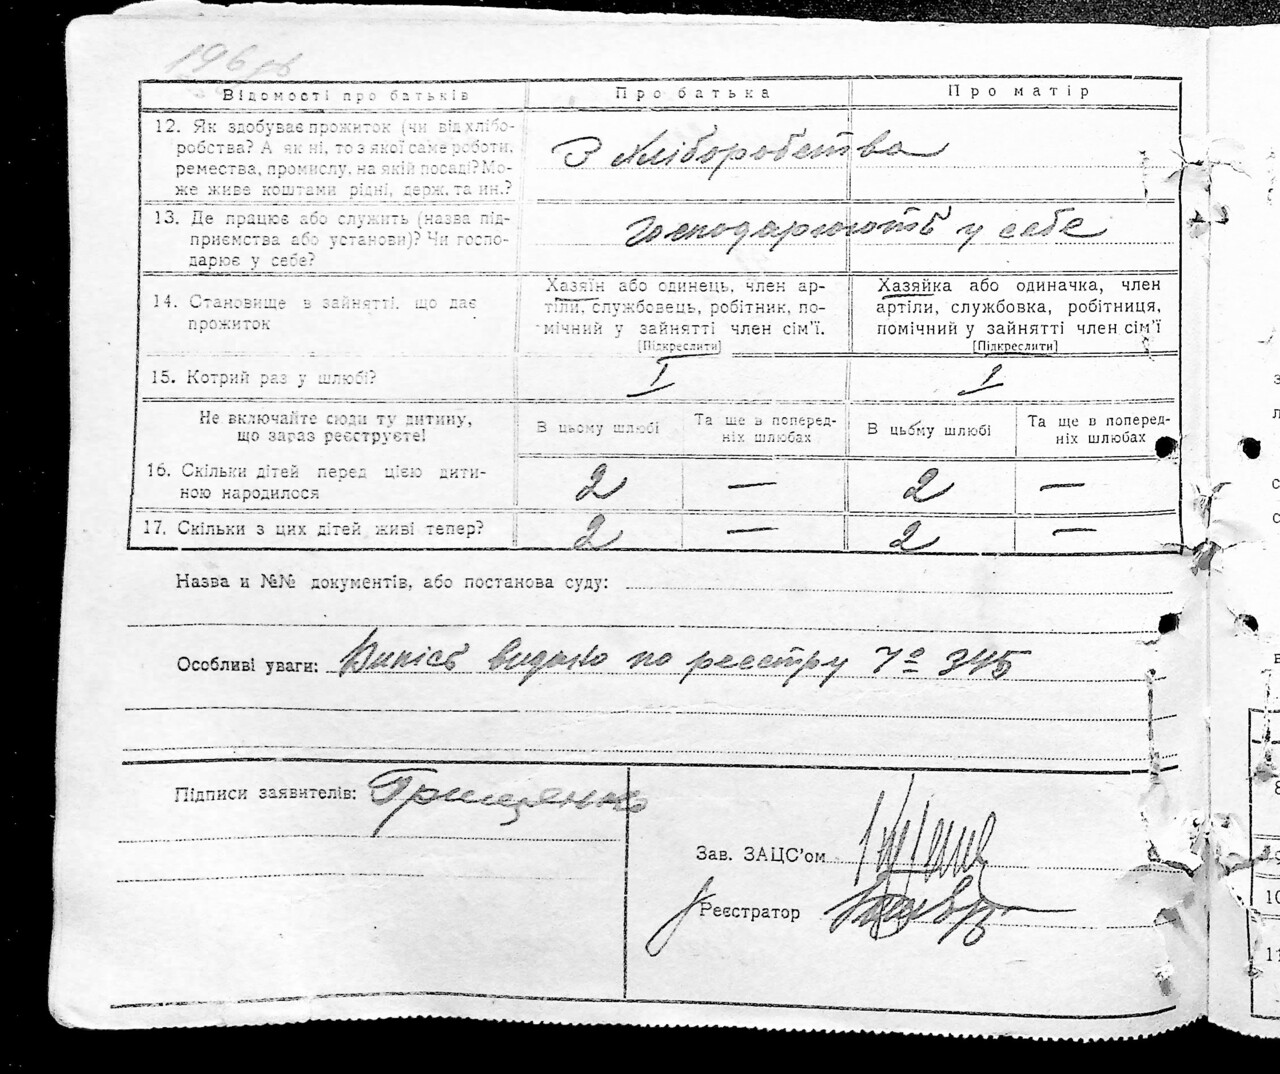 Відомості про батьків Про батька Про матір
12. Як здобуває прожиток (чи від хлібо-
робства? А як ні, то з якої саме роботи,
ремества, промислу, на якій посаді? Мо-
же живе коштами рідні, держ. та ин.?
З Хліборобства
13. Де працює або служить (назва під-
приємства або установи)? Чи госпо-
дарює у себе?
Господарюють у себе
14. Становище в зайнятті, що дає
прожиток
Хазяїн або одинець, член ар-
тіли, службовець, робітник, по-
мічний у зайнятті член сім'ї.
[Підкреслити]
Хазяйка або одиначка, член
артіли, службовка, робітниця,
помічний у зайнятті член сім'ї
[Підкреслити]
15. Котрий раз у шлюбі? I 1
Не включайте сюди ту дитину,
що зараз реєструєте!
В цьому шлюбі
Та ще в поперед-
ніх шлюбах
В цьому шлюбі
Та ще в поперед-
ніх шлюбах
16. Скільки дітей перед цією дити-
ною народилося
2 — 2 —
17. Скільки з цих дітей живі тепер? 2 — 2 —
Назва и №№ документів, або постанова суду:
Особливі уваги: Випісь видано по реєстру № 345
Підписи заявителів: Грищенко
Зав. ЗАЦС'ом
Реєстратор